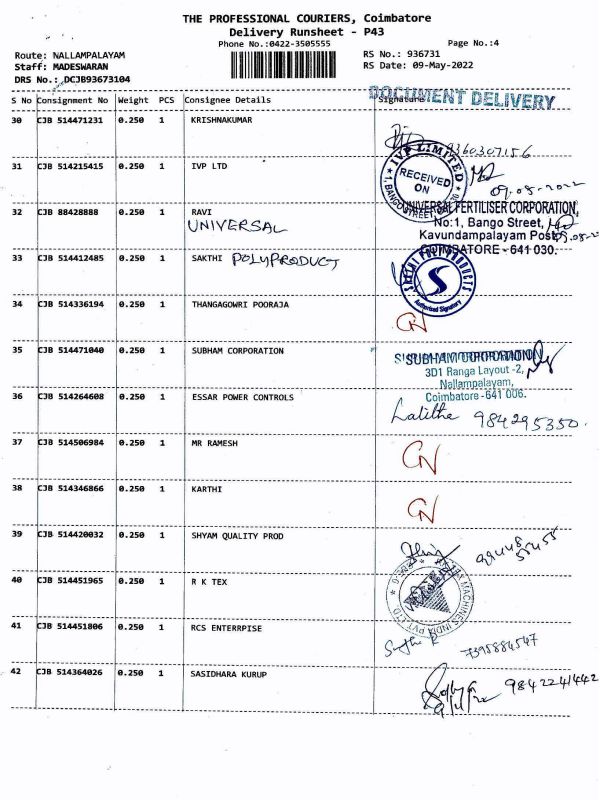 THE PROFESSIONAL COURIERS, Coimbatore
Delivery Runsheet - P43
Phone No.:0422-3505555 Page No.:4
Route: NALLAMPALAYAM RS No.: 936731
Staff: MADESWARAN RS Date: 09-May-2022
DRS No.: DCJB93673104
DOCUMENT DELIVERY
S No Consignment No Weight PCS Consignee Details Signature
30 CJB 514471231 0.250 1 KRISHNAKUMAR
9360307156
31 CJB 514215415 0.250 1 IVP LTD
IVP LIMITED
RECEIVED ON
09-05-2022
32 CJB 88428888 0.250 1 RAVI
UNIVERSAL
UNIVERSAL FERTILISER CORPORATION,
No:1, Bango Street,
Kavundampalayam Post,
COIMBATORE - 641 030.
33 CJB 514412485 0.250 1 SAKTHI POLYPRODUCT
SAKTHI POLY PRODUCTS
S
Authorised Signatory
34 CJB 514336194 0.250 1 THANGAGOWRI POORAJA
CN
35 CJB 514471040 0.250 1 SUBHAM CORPORATION
SUBHAM CORPORATION
3D1 Ranga Layout -2,
Nallampalayam,
Coimbatore -641 006.
36 CJB 514264608 0.250 1 ESSAR POWER CONTROLS
Lalitha 984295350.
37 CJB 514506984 0.250 1 MR RAMESH
CN
38 CJB 514346866 0.250 1 KARTHI
CN
39 CJB 514420032 0.250 1 SHYAM QUALITY PROD
99448 55455
40 CJB 514451965 0.250 1 R K TEX
MACHINES INDIA PVT LTD
41 CJB 514451806 0.250 1 RCS ENTERRPISE
7395884547
42 CJB 514364026 0.250 1 SASIDHARA KURUP
9842241442